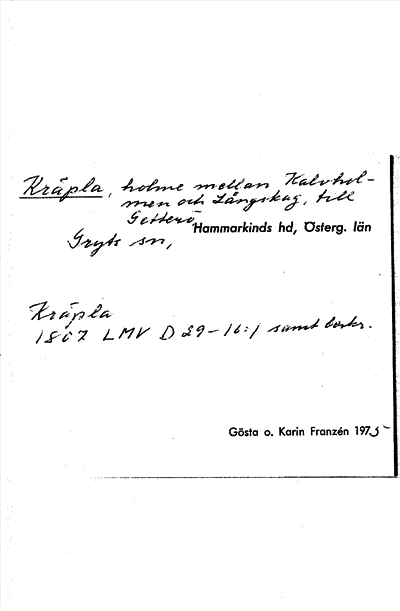 Kräpla, holme mellan Kalvhol-
men och Långskag, till
Getterö
Gryts sn, Hammarkinds hd, Österg. län
Kräpla
1807 LMV D 29-16:1 samt beskr.
Gösta o. Karin Franzén 1975